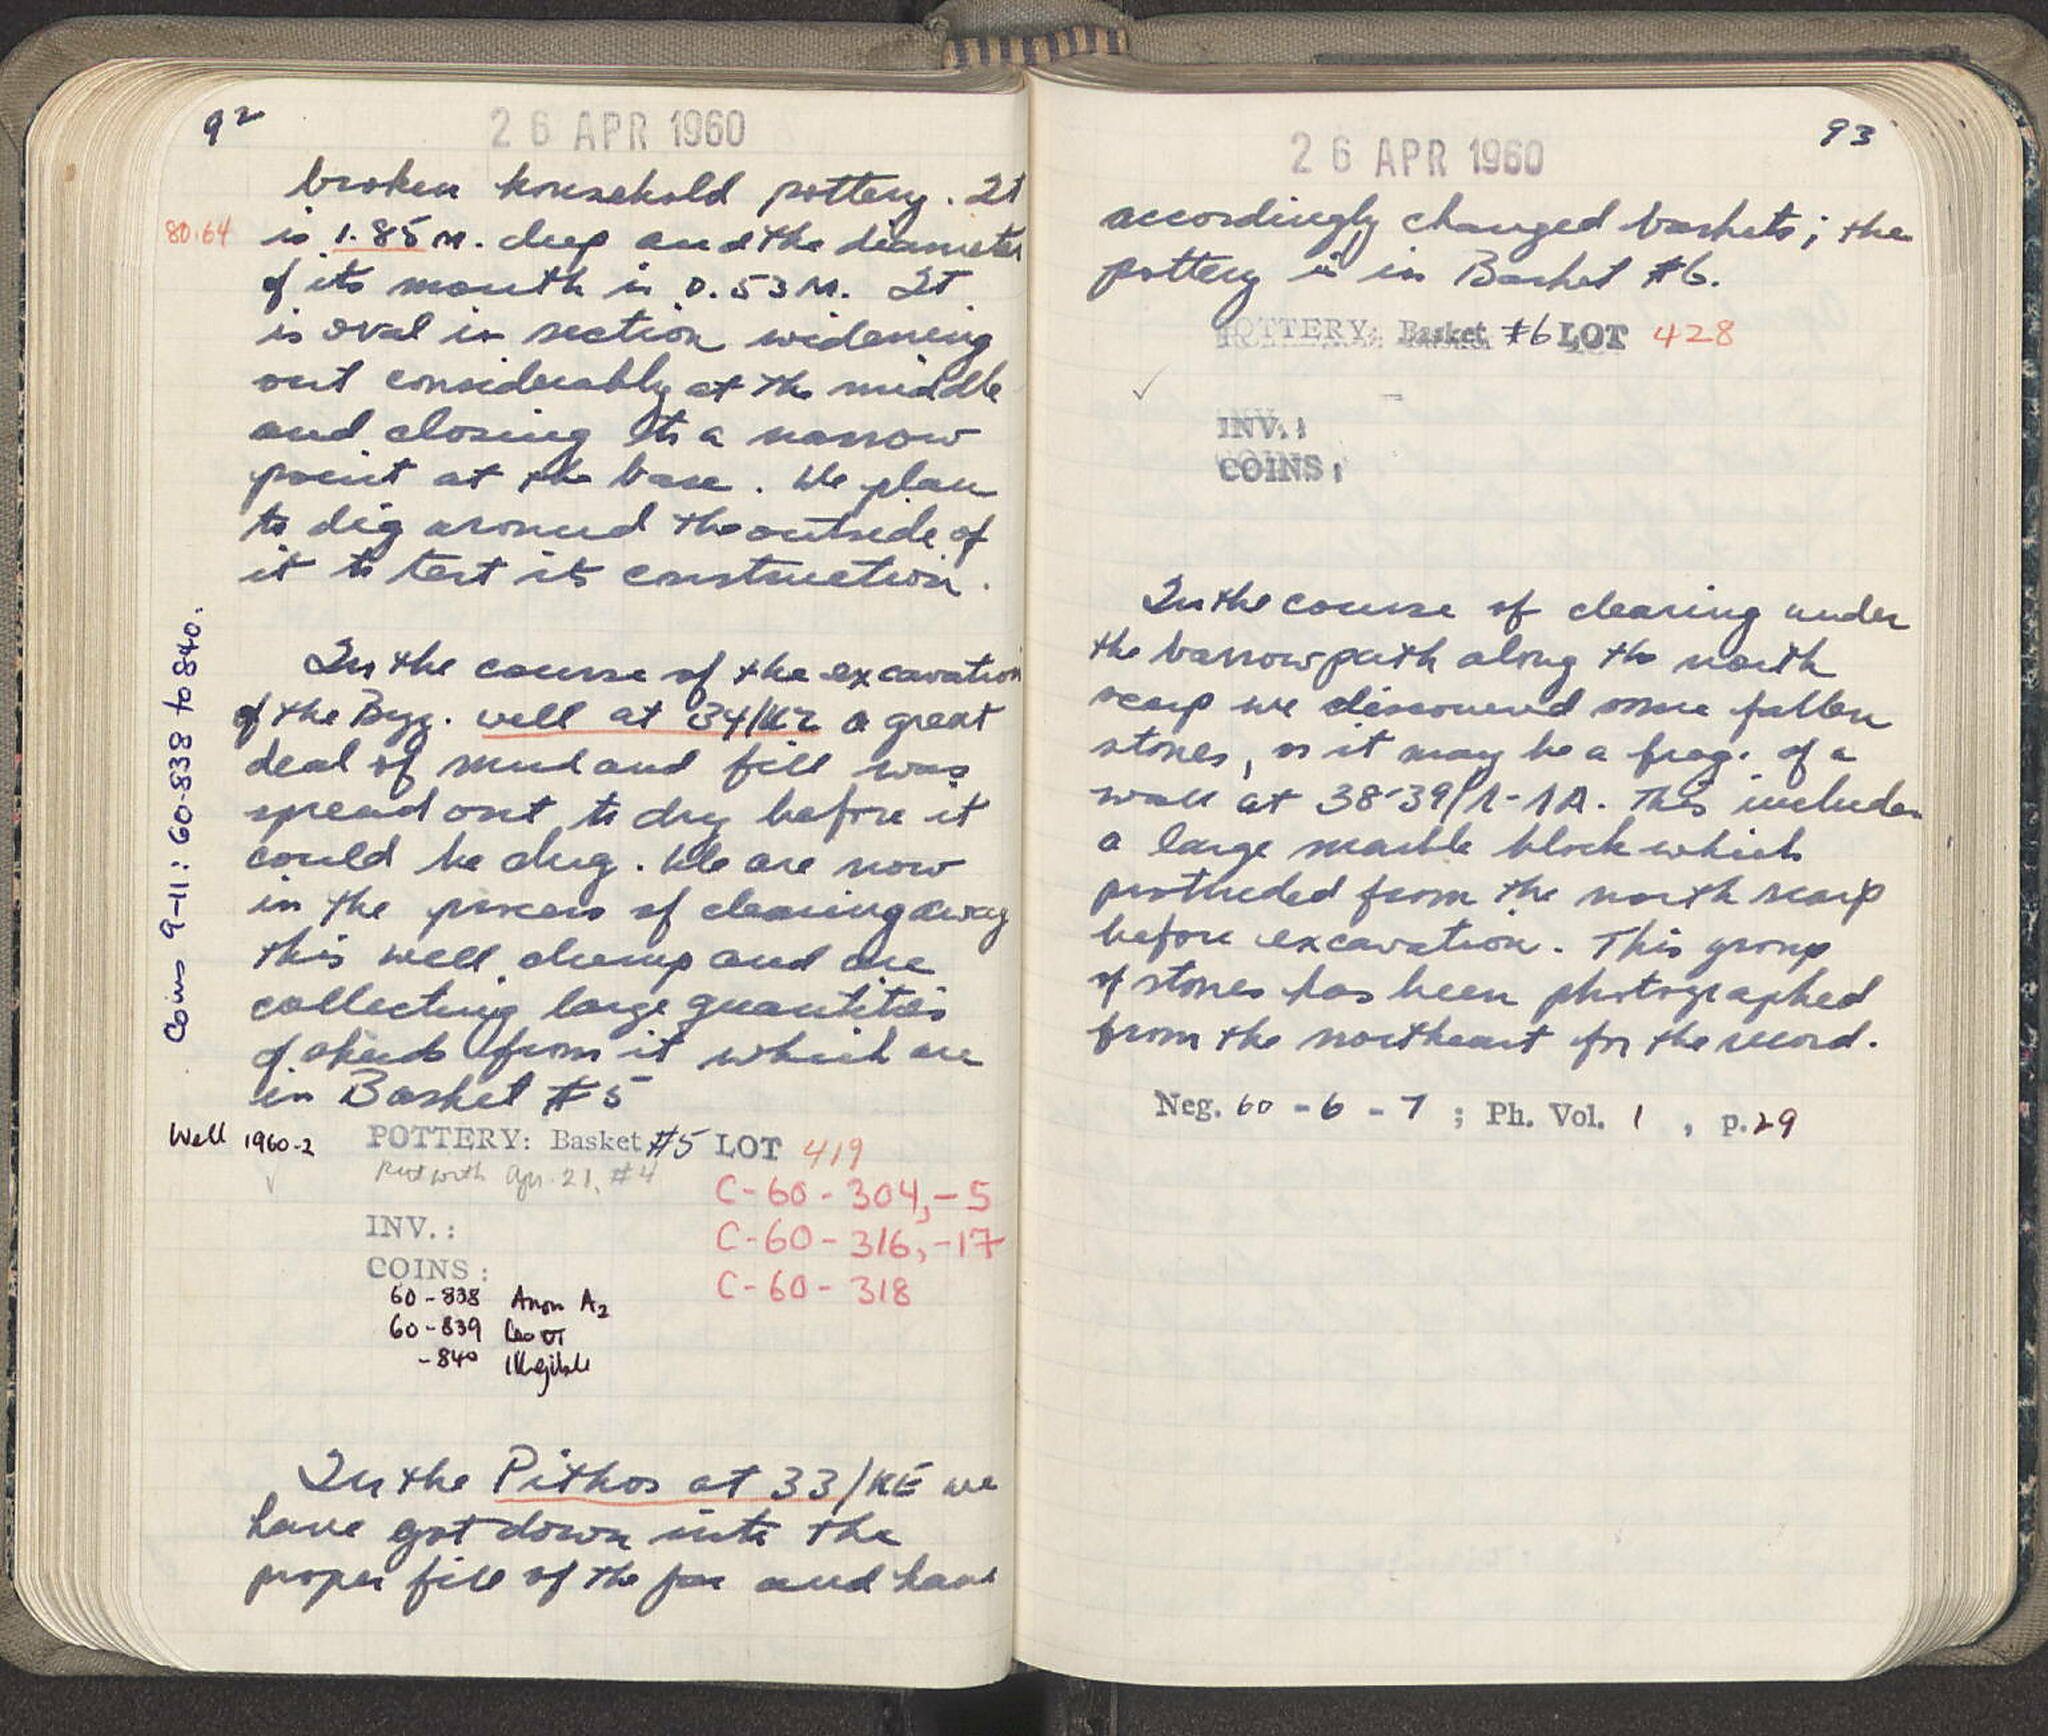 92
26 APR 1960
broken household pottery. It
80.64
is 1.85 m. deep and the diameter
of its mouth is 0.53 m. It
is oval in section widening
out considerably at the middle
and closing to a narrow
point at the base. We plan
to dig around the outside of
it to test its construction.
In the course of the excavation
of the Byz. well at 34/ΚΖ a great
deal of mud and fill was
spread out to dry before it
could be dug. We are now
in the process of clearing away
this well dump and are
collecting large quantities
of sherds from it which are
in Basket #5
Coins 9-11: 60-838 to 840.
Well 1960-2
POTTERY: Basket #5 LOT 419
Put with Apr. 21, #4
C-60-304,-5
INV.:
C-60-316,-17
COINS:
C-60-318
60-838 Anon A2
60-839 Leo VI
-840 illegible
In the Pithos at 33/ΚΕ we
have got down into the
proper fill of the jar and have
93
26 APR 1960
accordingly changed baskets; the
pottery is in Basket #6.
POTTERY: Basket #6 LOT 428
INV.:
COINS:
In the course of clearing under
the barrow path along the north
scarp we discovered some fallen
stones, or it may be a frag. of a
wall at 38-39/Λ-ΛΑ. This includes
a large marble block which
protruded from the north scarp
before excavation. This group
of stones has been photographed
from the northeast for the record.
Neg. 60-6-7; Ph. Vol. 1, p.29